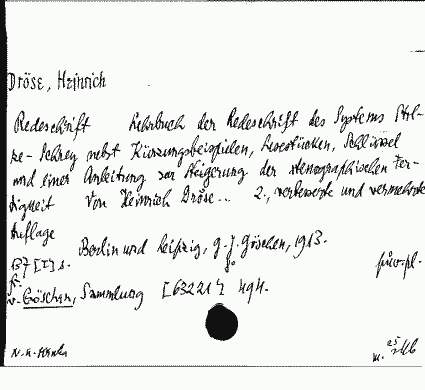 Dröse, Heinrich
Redeschrift Lehrbuch der Redeschrift des Systems Stol-
ze-Schrey nebst Kürzungsbeispielen, Lesestücken, Schlüssel
und einer Anleitung zur Steigerung der stenographischen Fer-
tigkeit Von Heinrich Dröse... 2., verbesserte und vermehrte
Auflage
Berlin und Leipzig, G. J. Göschen, 1913.
137 [1] s. 8°
Göschen, Sammlung [63221] 494.